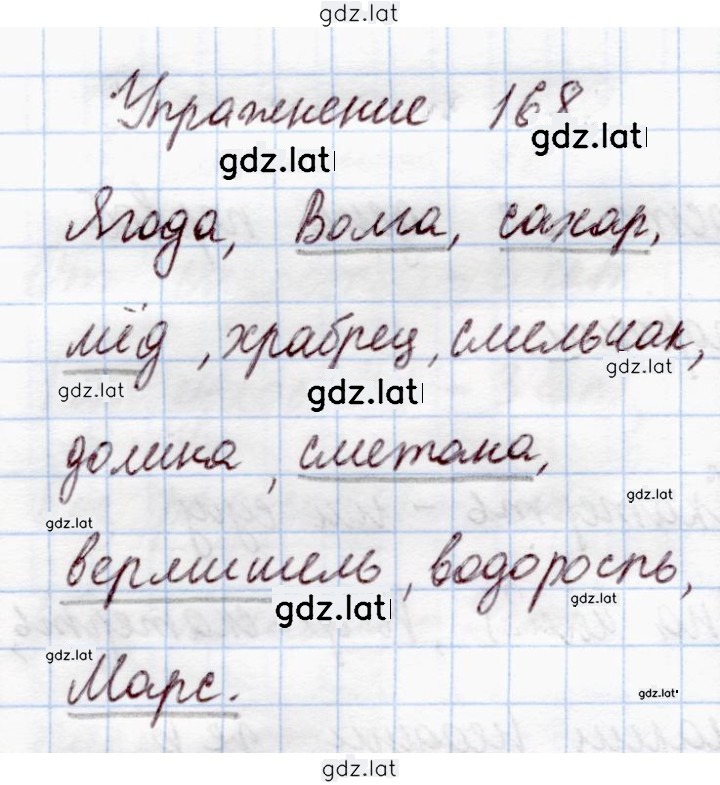 gdz.lat
Упражнение 168
gdz.lat
gdz.lat
Ягода, Волга, сахар,
мёд, храбрец, смельчак,
gdz.lat
gdz.lat
gdz.lat
долина, сметана,
gdz.lat
gdz.lat
вермишель, водоросль,
gdz.lat
gdz.lat
gdz.lat
Марс.
gdz.lat
gdz.lat